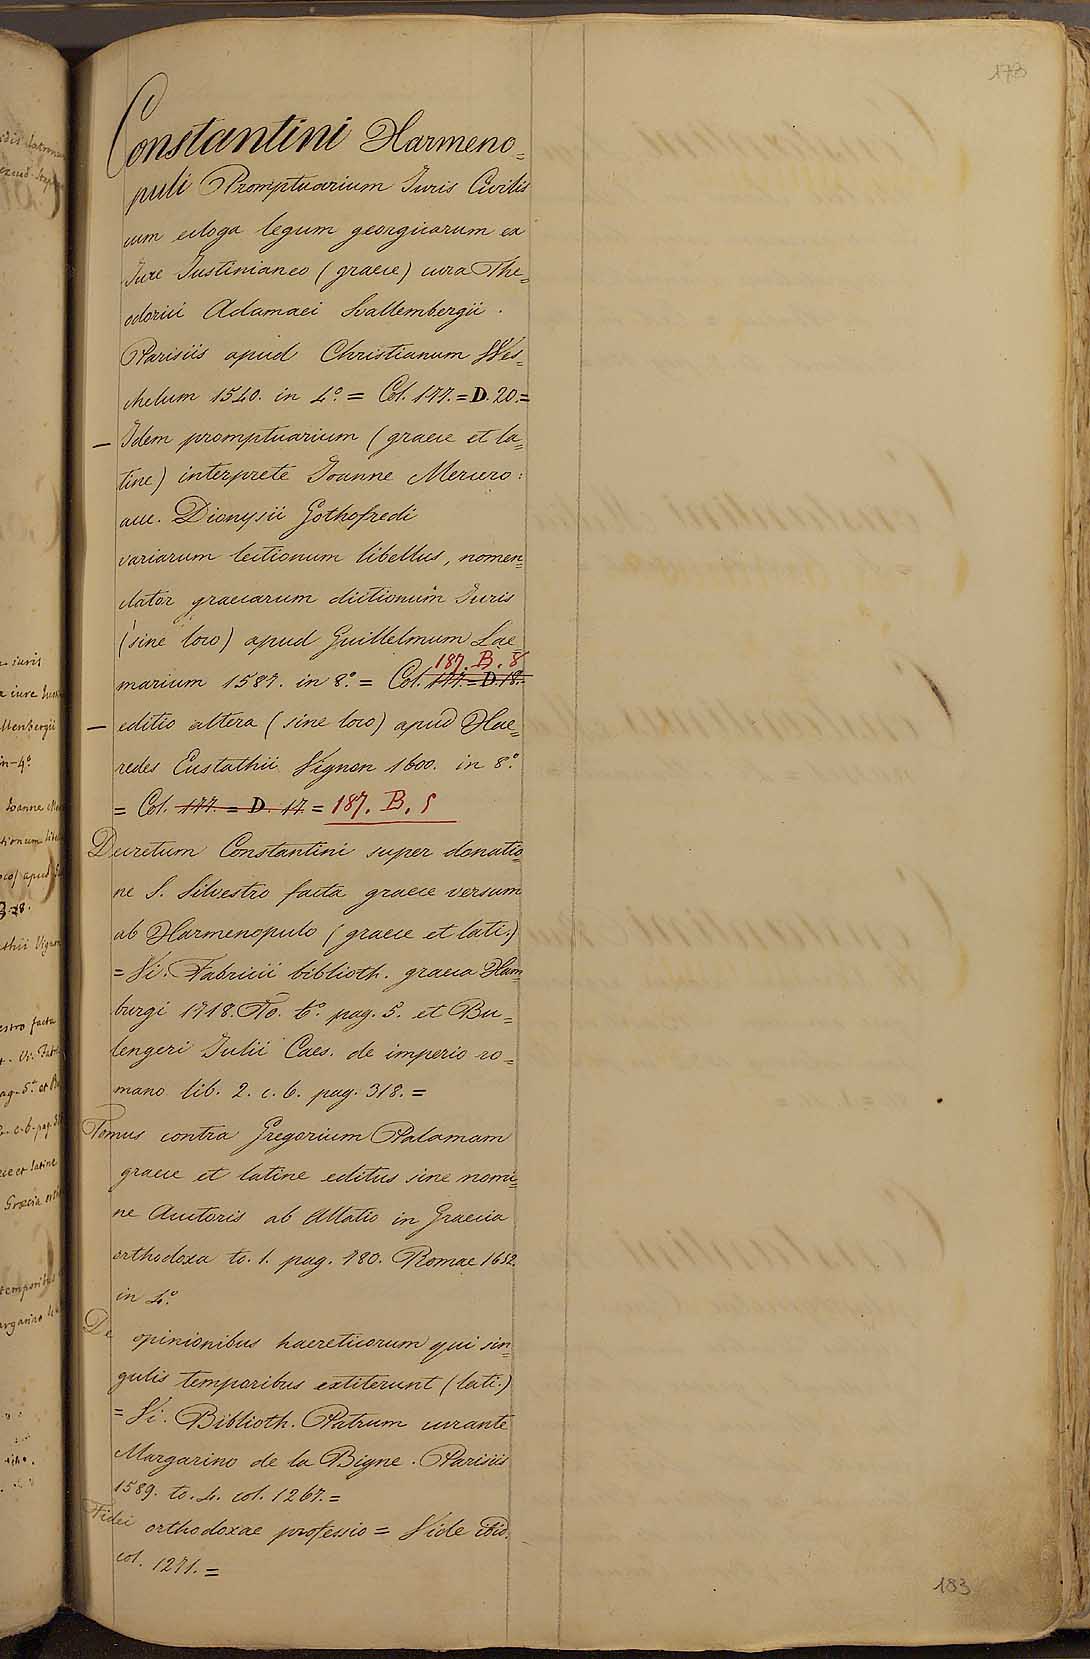 173
Constantini Harmeno=
puli Promptuarium Juris Civilis
cum ecloga legum georgicarum ex
Jure Justinianeo (graece) cura The=
odorici Adamaei Suallembergii.
Parisiis apud Christianum Wes=
chelum 1540. in 4.° = Col. 177. = D. 20. =
— Idem promptuarium (graece et la=
tine) interprete Joanne Mercero:
acc. Dionysii Gothofredi
variarum lectionum libellus, nomen=
clator graecarum dictionum Juris
(sine loco) apud Guillelmum Lae=
187. B. 8
marium 1587. in 8.° = Col. 177. = D. 18. =
— editio altera (sine loco) apud Hae=
redes Eustathii Vignon 1600. in 8.°
= Col. 177. = D. 17. = 187. B. 5
Decretum Constantini super donatio=
ne S. Silvestro facta graece versum
ab Harmenopulo (graece et lati.)
= Vi. Fabricii biblioth. graeca Ham=
burgi 1718. To. 6.° pag. 5. et Bu=
lengeri Julii Caes. de imperio ro=
mano lib. 2. c. 6. pag. 318. =
Tomus contra Gregorium Palamam
graece et latine editus sine nomi=
ne Auctoris ab Allatio in Graecia
orthodoxa to. 1. pag. 780. Romae 1652.
in 4.°
De opinionibus haereticorum qui sin=
gulis temporibus extiterunt (lati.)
= Vi. Biblioth. Patrum curante
Margarino de la Bigne. Parisiis
1589. to. 4. col. 1267. =
Fidei orthodoxae professio = Vide ibid.
col. 1271. =
183